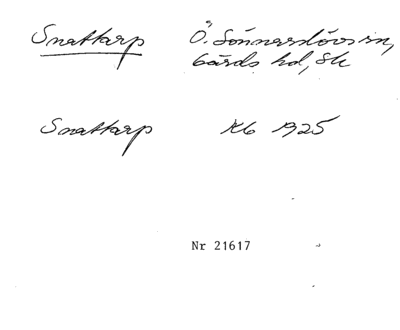 Snattarp Ö. Sönnarslövs sn,
Gärds hd, Sk
Snattarp Kb 1925
Nr 21617